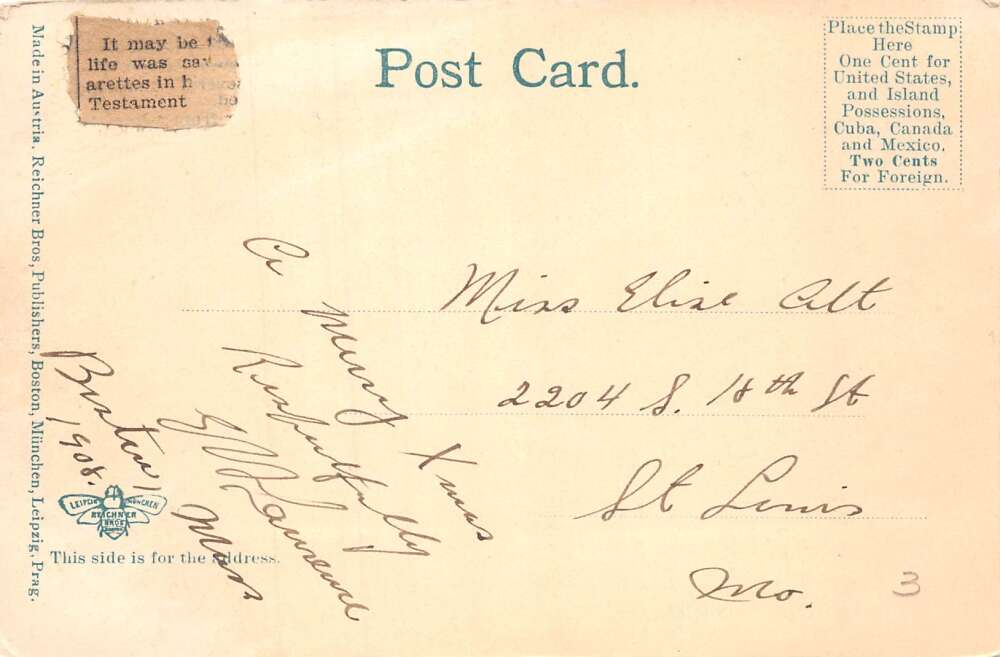 It may be
life was sav
arettes in h
Testament
Post Card.
Place the Stamp
Here
One Cent for
United States,
and Island
Possessions,
Cuba, Canada
and Mexico.
Two Cents
For Foreign.
Made in Austria. Reichner Bros, Publishers, Boston, München, Leipzig, Prag.
A Merry Xmas
Respectfully
Lawrence
Boston, Mass
1908.
Miss Elise Alt
2204 S. 18th St
St Louis
Mo.
3
LEIPZIG MÜNCHEN
REICHNER
BROS
This side is for the address.